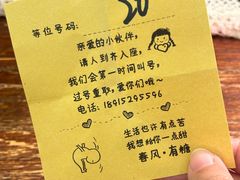 等位号码: 50
亲爱的小伙伴,
请人到齐入座,
我们会第一时间叫号,
过号重取,爱你们哦~
电话:18915295596
生活也许有点苦
我想给你一点甜
春风·有糖